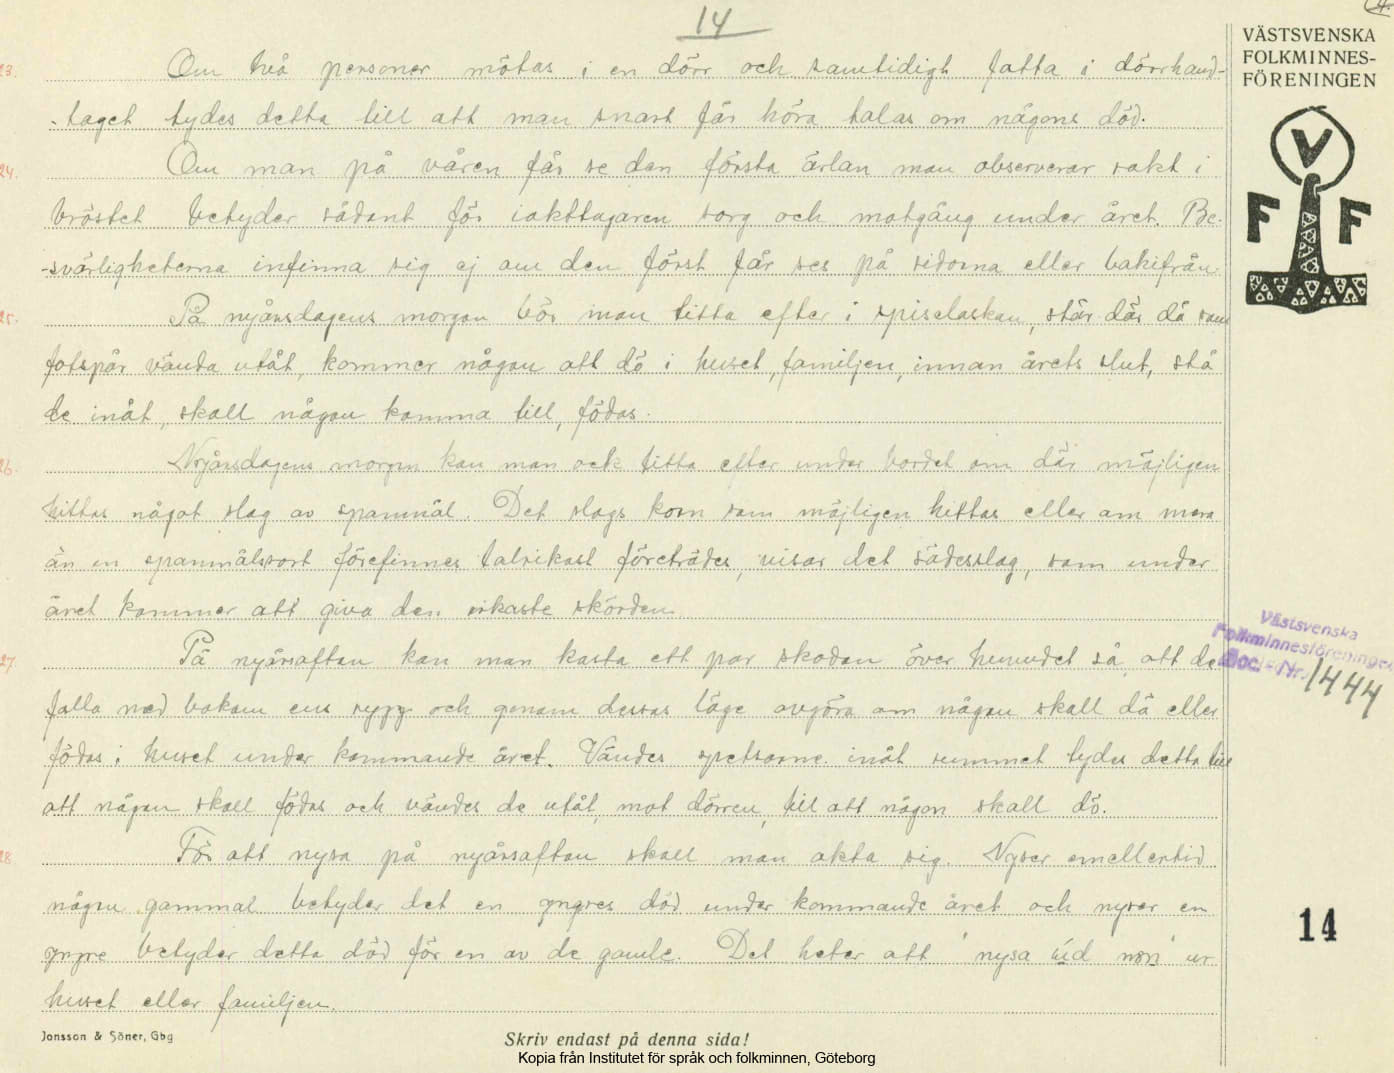 14
4.
VÄSTSVENSKA
FOLKMINNES-
FÖRENINGEN
V
F F
23. Om två personer mötas i en dörr och samtidigt fatta i dörrhand-
-taget tydes detta till att man snart får höra talas om någons död.
24. Om man på våren får se den första ärlan man observerar rakt i
bröstet betyder sådant för iakttagaren sorg och motgång under året. Be-
-svärligheterna infinna sig ej om den först får ses på sidorna eller bakifrån.
25. På nyårsdagens morgon bör man titta efter i spiselaskan, står där då som
fotspår vända utåt, kommer någon att dö i huset, familjen, innan årets slut, stå
de inåt, skall någon komma till, födas.
26. Nyårsdagens morgon kan man ock titta efter under bordet om där möjligen
hittas något slag av spannmål. Det slags korn som möjligen hittas eller om mera
än en spannmålsort förefinnes talrikast företrädes, visar det sädesslag, som under
året kommer att giva den rikaste skörden.
27. På nyårsafton kan man kasta ett par skodon över huvudet så att de
falla ned bakom ens rygg och genom dessas läge avgöra om någon skall dö eller
födas i huset under kommande året. Vändes spetsarne inåt rummet tydes detta till
att någon skall födas och vändes de utåt, mot dörren, till att någon skall dö.
28. För att nysa på nyårsafton skall man akta sig. Nyser emellertid
någon gammal betyder det en yngres död under kommande året och nyser en
yngre betyder detta död för en av de gamle. Det heter att 'nysa ud non' ur
huset eller familjen.
Västsvenska
Folkminnesföreningen
Acc.-Nr. 1444
14
Jonsson & Söner, Gbg
Skriv endast på denna sida!
Kopia från Institutet för språk och folkminnen, Göteborg